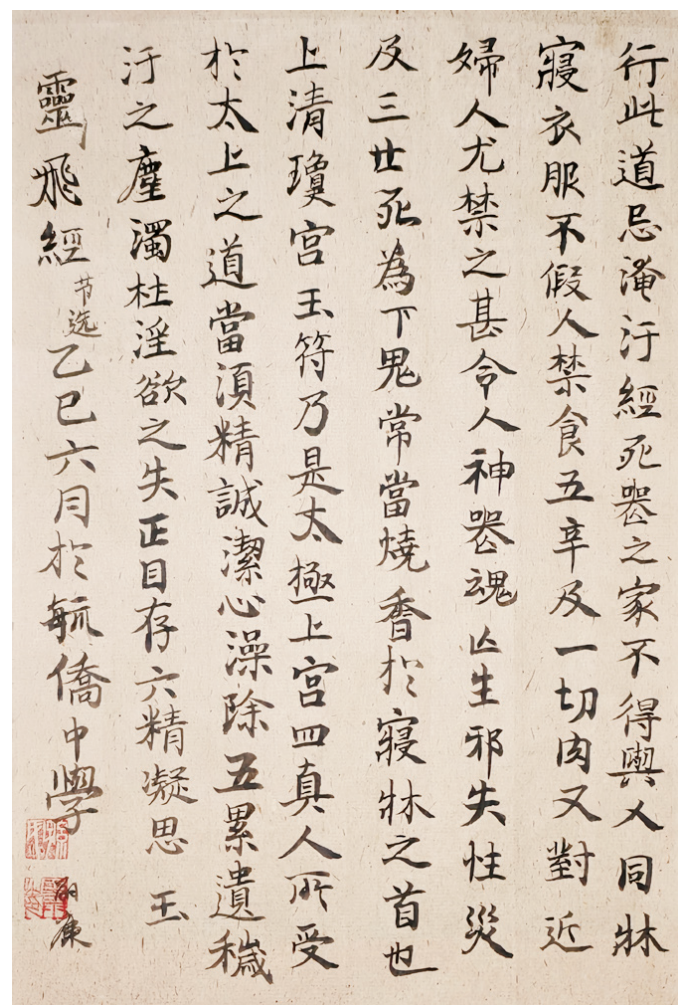 行此道忌淹汙經死喪之家不得與人同牀
寢衣服不假人禁食五辛及一切肉又對近
婦人尤禁之甚令人神喪魂亡生邪失性災
及三世死為下鬼常當燒香於寢牀之首也
上清瓊宮玉符乃是太極上宮四真人所受
於太上之道當須精誠潔心澡除五累遺穢
汙之塵濁杜淫欲之失正目存六精凝思玉
靈飛經节选乙巳六月於毓僑中學
康